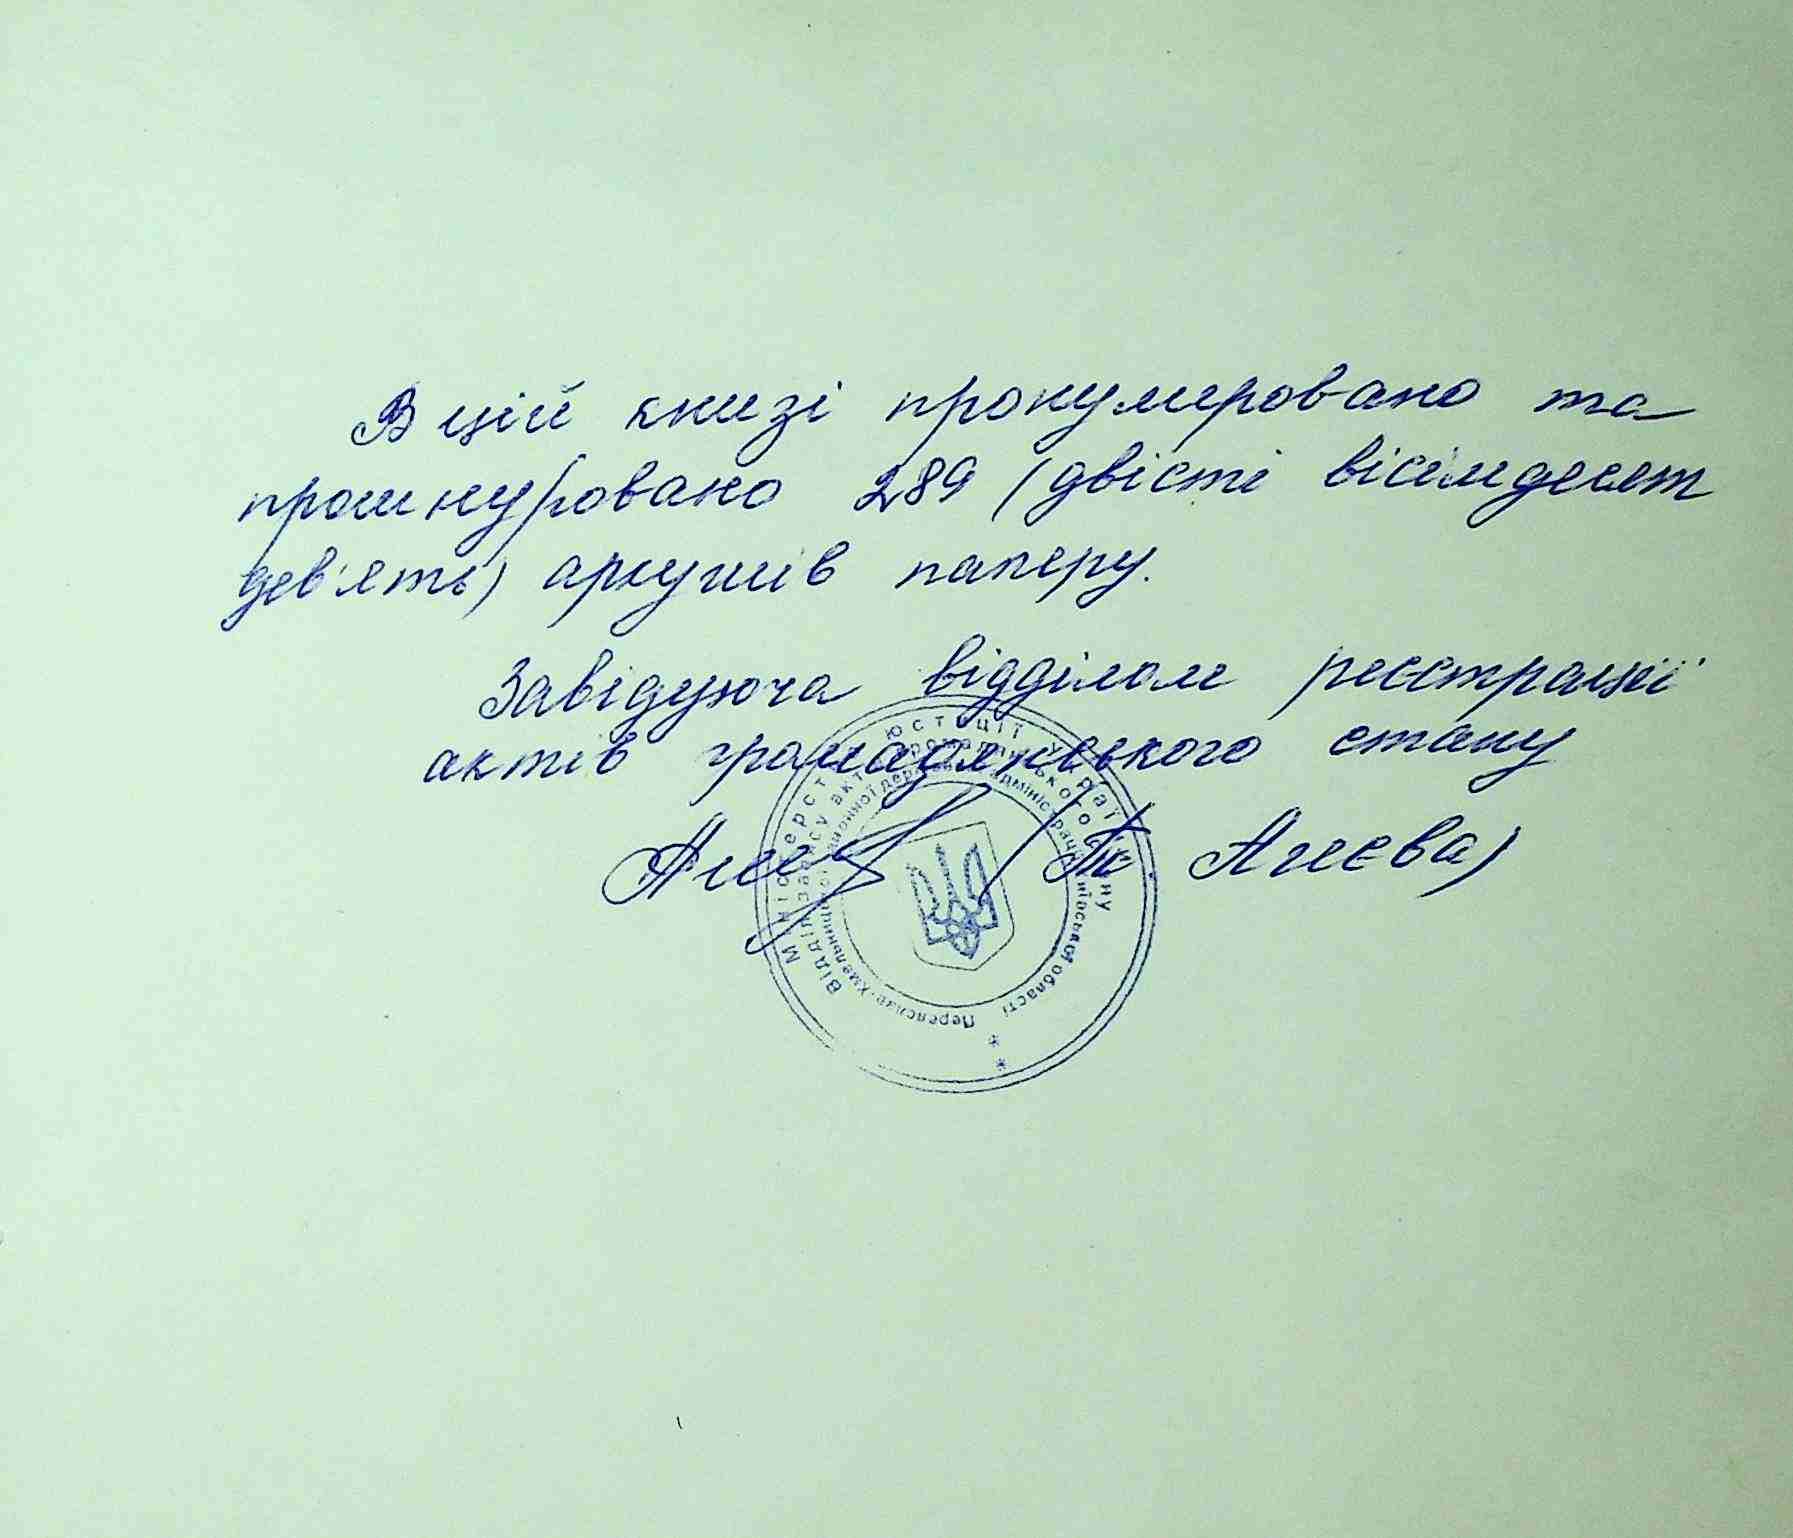 В цій книзі пронумеровано та
прошнуровано 289 (двісті вісімдесят
дев'ять) аркушів паперу.
Завідуюча відділом реєстрації
актів громадянського стану
Міністерство юстиції України
Відділ запису актів громадянського стану
Переяслав-Хмельницької державної адміністрації Київської області